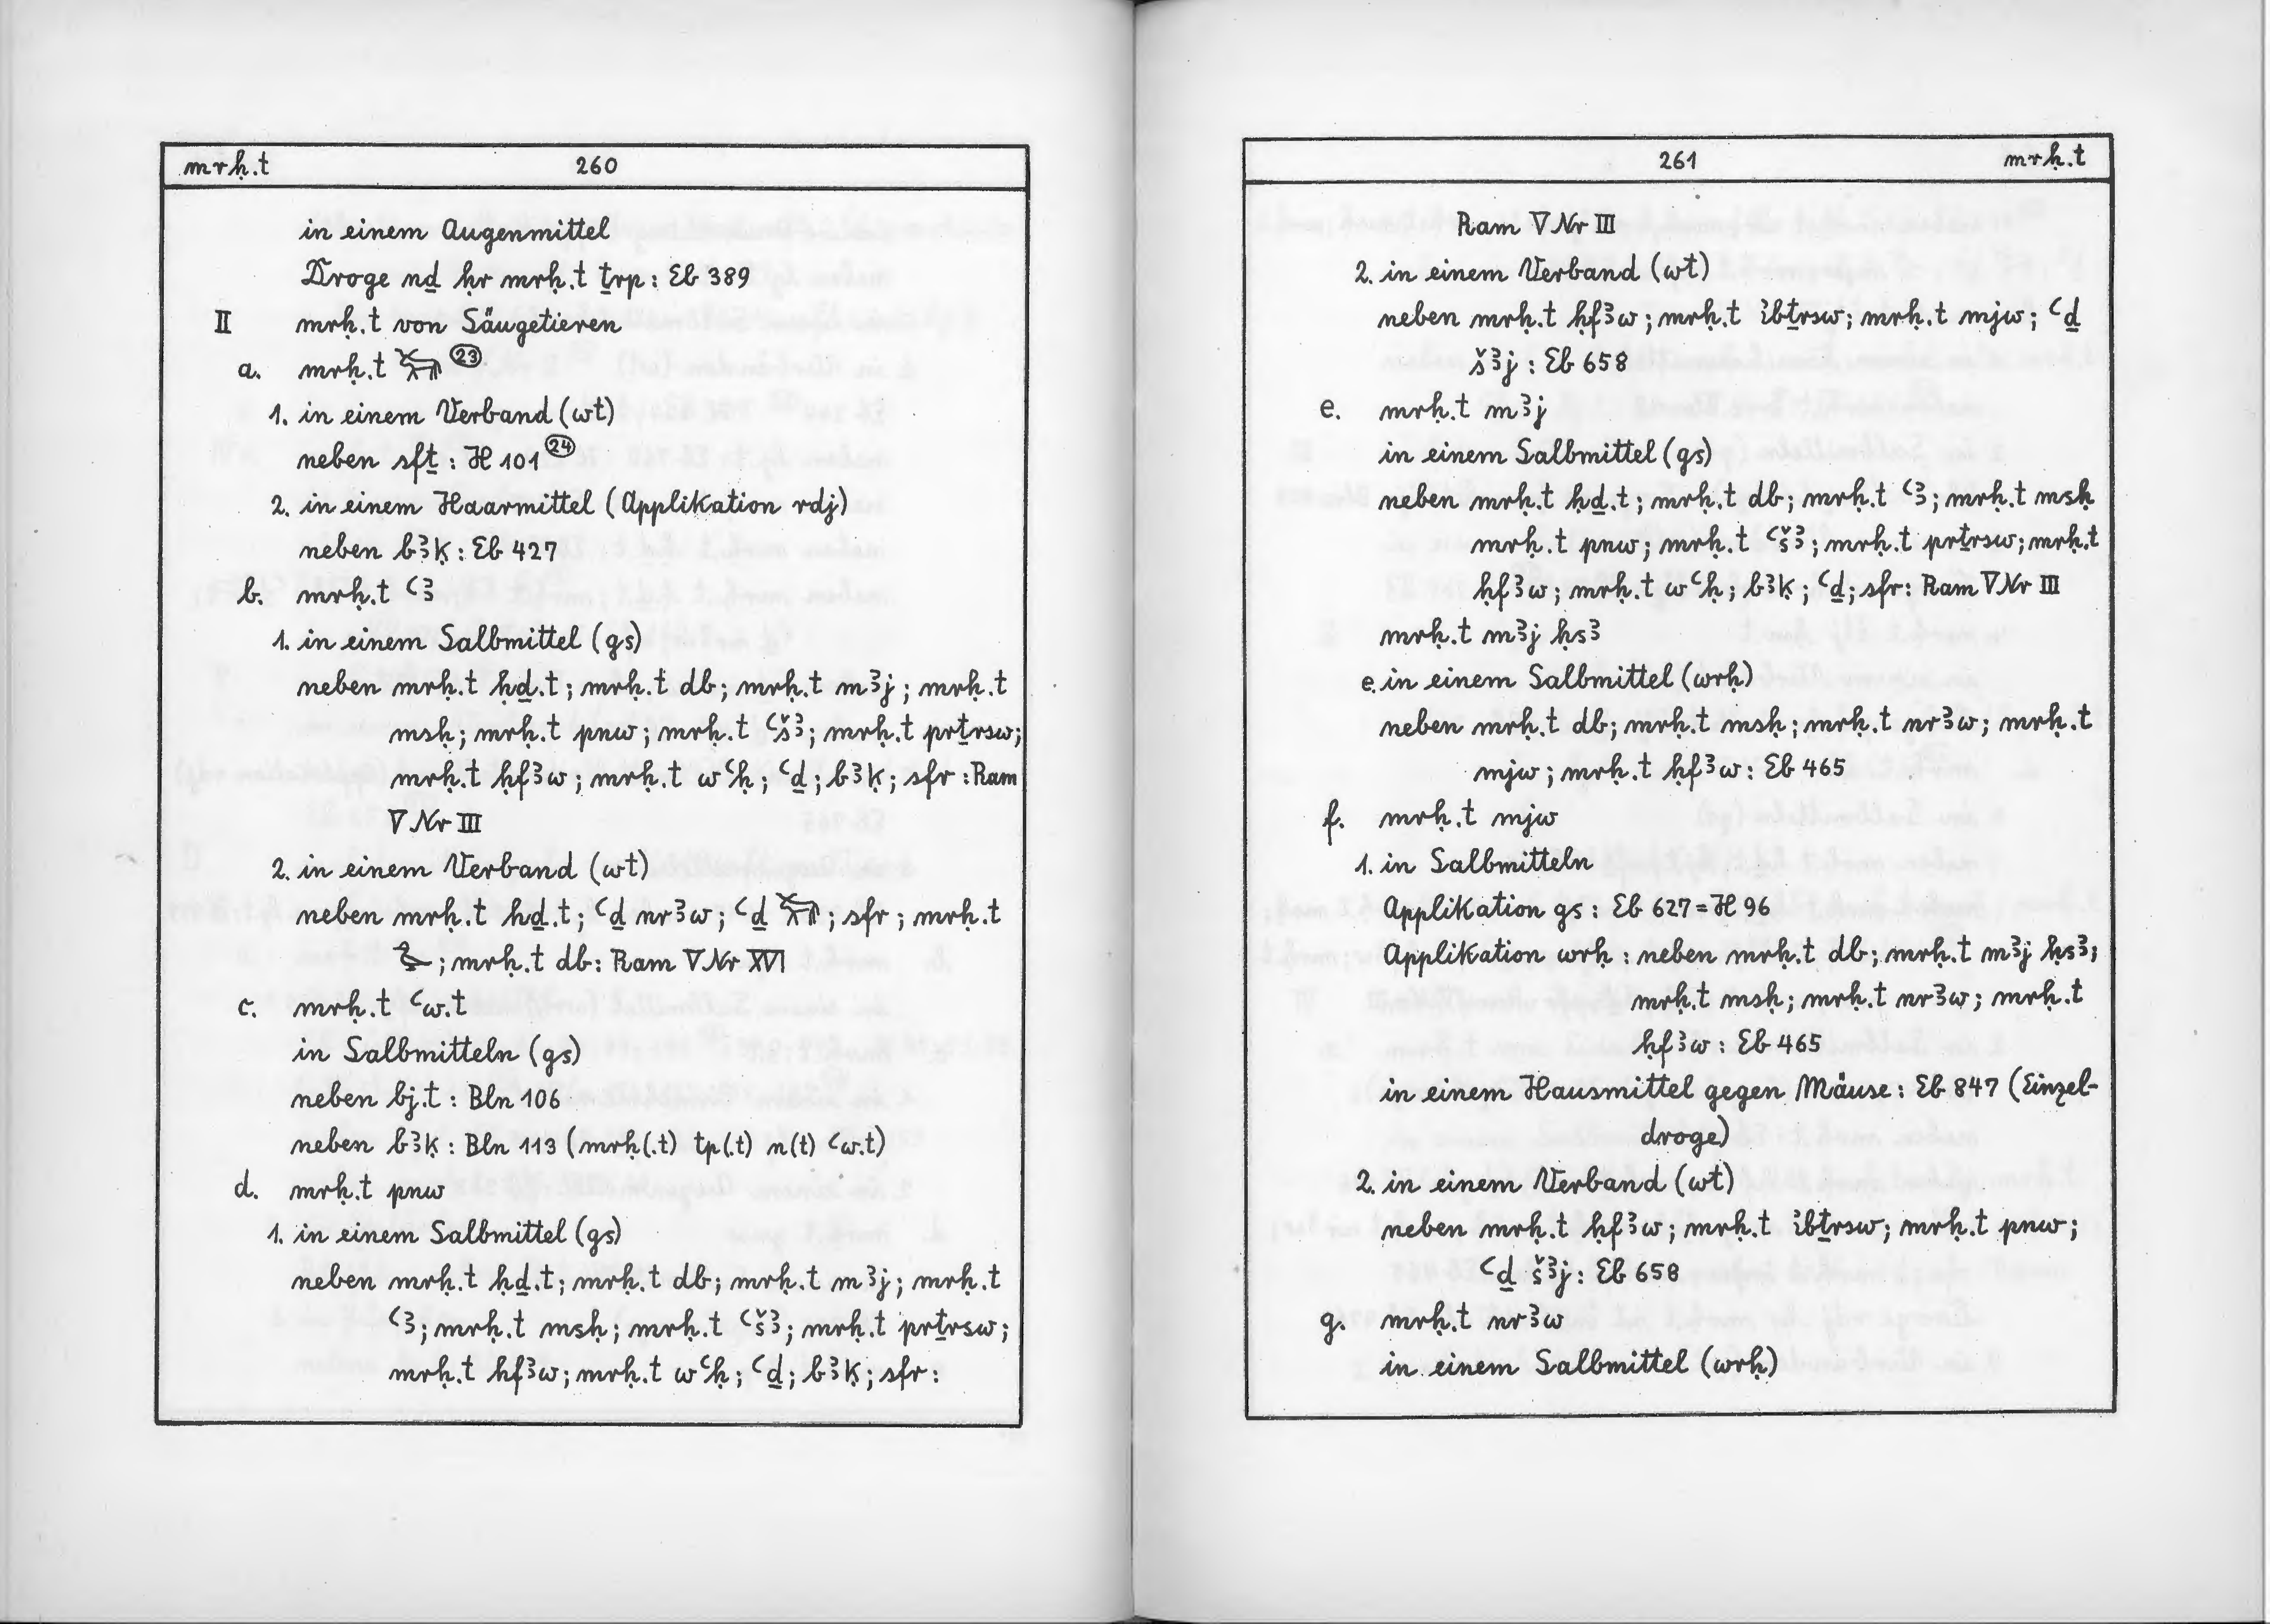 mrḥ.t 260
in einem Augenmittel
Droge nḏ ḥr mrḥ.t ṯrp : Eb 389
II mrḥ.t von Säugetieren
a. mrḥ.t ㉓
1. in einem Verband (wt)
neben sfṯ : H 101 ㉔
2. in einem Haarmittel (Applikation rdj)
neben bꜣḳ : Eb 427
b. mrḥ.t ꜥꜣ
1. in einem Salbmittel (gs)
neben mrḥ.t ḥḏ.t ; mrḥ.t db ; mrḥ.t mꜣj ; mrḥ.t
msḥ ; mrḥ.t pnw ; mrḥ.t ꜥšꜣ ; mrḥ.t prṯrsw ;
mrḥ.t ḥfꜣw ; mrḥ.t wꜥḥ ; ꜥḏ ; bꜣḳ ; sfr : Ram
V Nr III
2. in einem Verband (wt)
neben mrḥ.t ḥḏ.t ; ꜥḏ nrꜣw ; ꜥḏ ; sfr ; mrḥ.t
; mrḥ.t db : Ram V Nr XVI
c. mrḥ.t ꜥw.t
in Salbmitteln (gs)
neben bj.t : Bln 106
neben bꜣḳ : Bln 113 (mrḥ(.t) tp(.t) n(t) ꜥw.t)
d. mrḥ.t pnw
1. in einem Salbmittel (gs)
neben mrḥ.t ḥḏ.t ; mrḥ.t db ; mrḥ.t mꜣj ; mrḥ.t
ꜥꜣ ; mrḥ.t msḥ ; mrḥ.t ꜥšꜣ ; mrḥ.t prṯrsw ;
mrḥ.t ḥfꜣw ; mrḥ.t wꜥḥ ; ꜥḏ ; bꜣḳ ; sfr :
261 mrḥ.t
Ram V Nr III
2. in einem Verband (wt)
neben mrḥ.t ḥfꜣw ; mrḥ.t ibṯrsw ; mrḥ.t mjw ; ꜥḏ
šꜣj : Eb 658
e. mrḥ.t mꜣj
in einem Salbmittel (gs)
neben mrḥ.t ḥḏ.t ; mrḥ.t db ; mrḥ.t ꜥꜣ ; mrḥ.t msḥ
mrḥ.t pnw ; mrḥ.t ꜥšꜣ ; mrḥ.t prṯrsw ; mrḥ.t
ḥfꜣw ; mrḥ.t wꜥḥ ; bꜣḳ ; ꜥḏ ; sfr : Ram V Nr III
mrḥ.t mꜣj ḥsꜣ
e. in einem Salbmittel (wrḥ)
neben mrḥ.t db ; mrḥ.t msḥ ; mrḥ.t nrꜣw ; mrḥ.t
mjw ; mrḥ.t ḥfꜣw : Eb 465
f. mrḥ.t mjw
1. in Salbmitteln
Applikation gs : Eb 627 = H 96
Applikation wrḥ : neben mrḥ.t db ; mrḥ.t mꜣj ḥsꜣ ;
mrḥ.t msḥ ; mrḥ.t nrꜣw ; mrḥ.t
ḥfꜣw : Eb 465
in einem Hausmittel gegen Mäuse : Eb 847 (Einzel-
droge)
2. in einem Verband (wt)
neben mrḥ.t ḥfꜣw ; mrḥ.t ibṯrsw ; mrḥ.t pnw ;
ꜥḏ šꜣj : Eb 658
g. mrḥ.t nrꜣw
in einem Salbmittel (wrḥ)